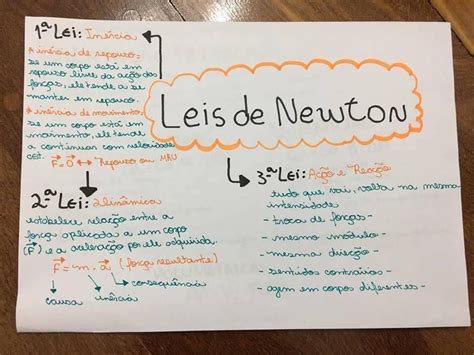 Leis de Newton
1ª Lei: Inércia
* inércia de repouso:
se um corpo está em
repouso livre da ação das
forças, ele tende a se
manter em repouso.
* inércia de movimento:
se um corpo está em
movimento, ele tende
a continuar com velocidade
cst. F⃗=0⃗ ↔ Repouso ou MRU
2ª Lei: Dinâmica
estabelece relação entre a
força aplicada a um corpo
(F⃗) e a aceleração por ele adquirida.
F⃗ = m . a⃗ (força resultante)
causa inércia consequência
3ª Lei: Ação e Reação
tudo que vai, volta na mesma
intensidade
- troca de forças -
- mesmo módulo -
- mesma direção -
- sentidos contrários -
- agem em corpos diferentes -